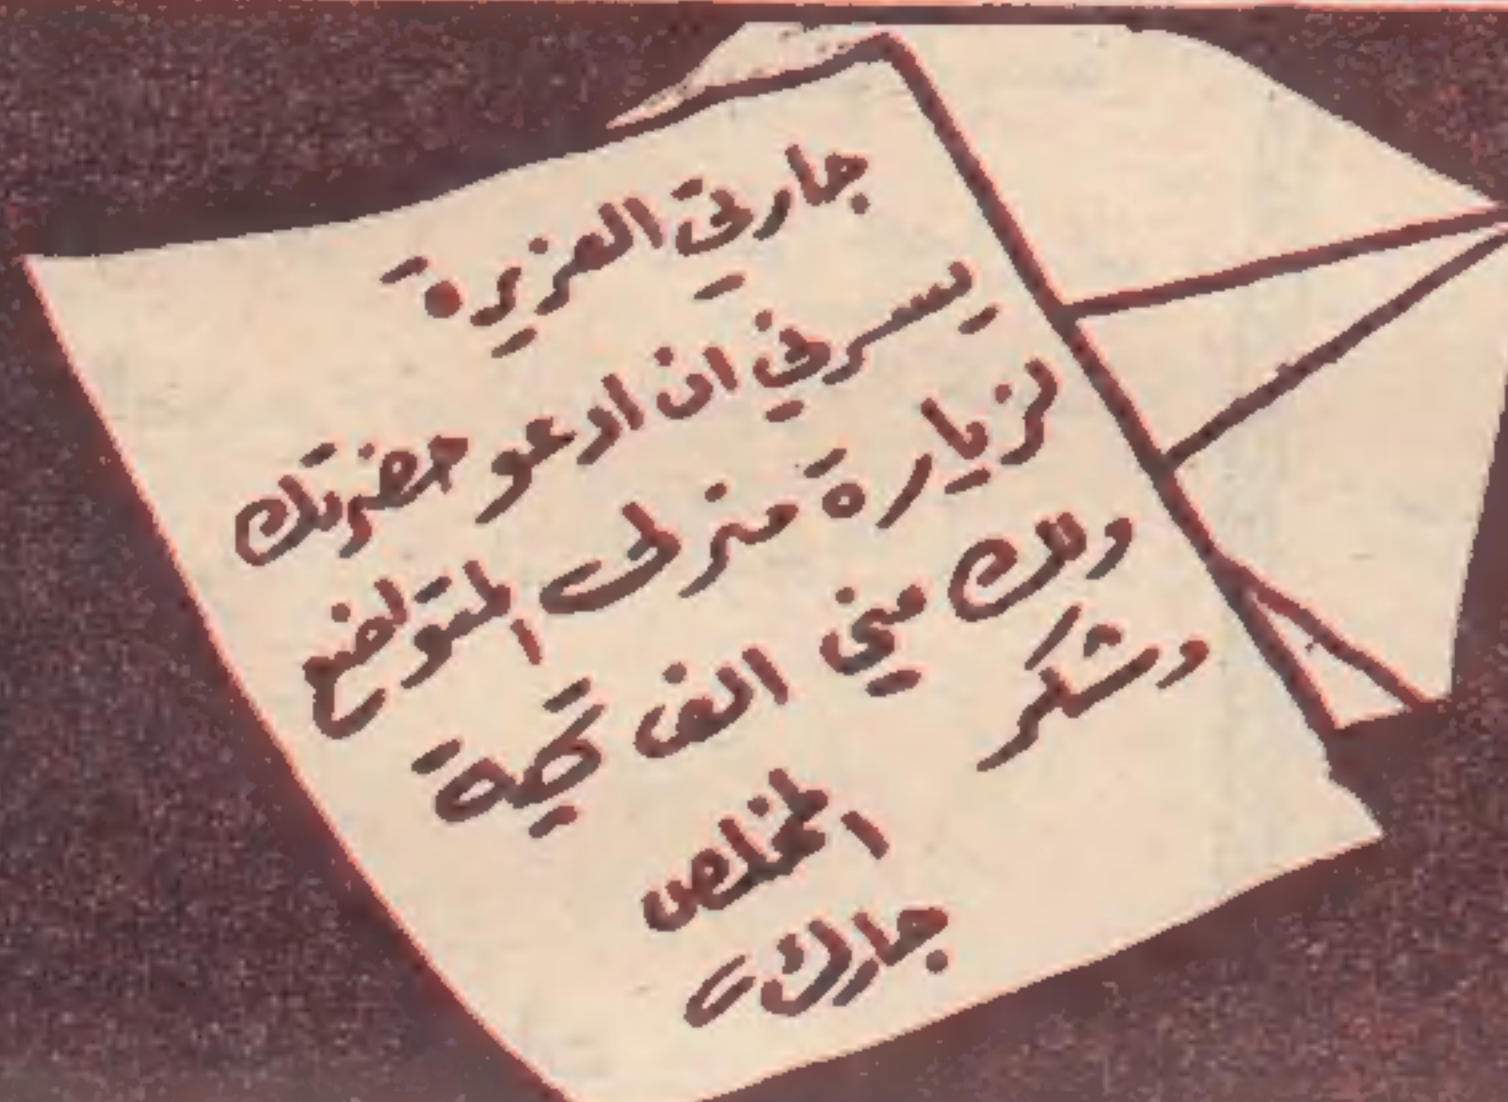 جارتي العزيزة
يسرني ان ادعو حضرتك
لزيارة منزلي المتواضع
ولك مني الف تحية
وشكر
المخلص
جارك